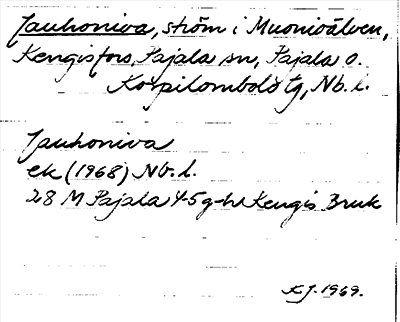 Jauhoniva, ström i Muonioälven,
Kengisfors, Pajala sn, Pajala o.
Korpilombolo tg, Nb. l.
Jauhoniva
ek (1968) Nb. l.
28 M Pajala 4-5 g-h Kengis Bruk
KJ. 1969.